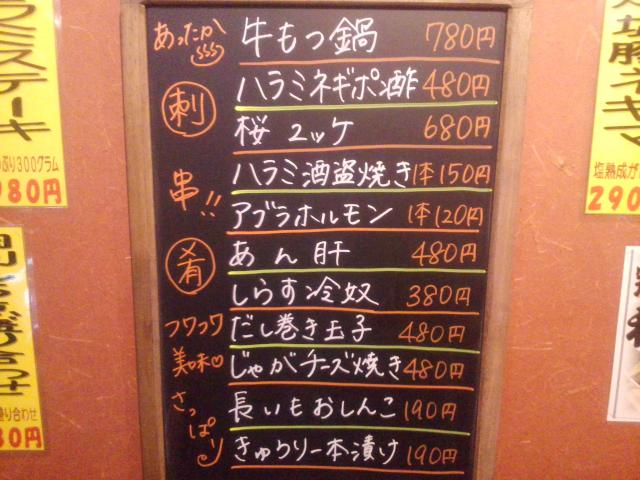 あったか 牛もつ鍋 780円
刺 ハラミネギポン酢 480円
桜ユッケ 680円
串!! ハラミ酒盗焼き 1本150円
アブラホルモン 1本120円
肴 あん肝 480円
しらす冷奴 380円
フワフワ だし巻き玉子 480円
美味♡ じゃがチーズ焼き 480円
さっぱり 長いもおしんこ 190円
きゅうり一本漬け 190円
ラミステーキ
300グラム
980円
塩熟成が
290
盛り合わせ
80円